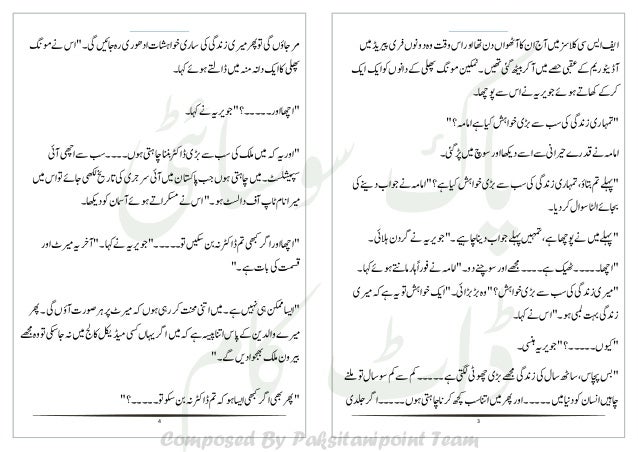 ایف ایس سی کلاسز میں آج ان کا آٹھواں دن تھا اور اس وقت وہ دونوں فری پیریڈ میں
آڈیٹوریم کے عقبی حصے میں آ کر بیٹھ گئی تھیں۔ نمکین مونگ پھلی کے دانوں کو ایک ایک
کرکے کھاتے ہوئے جویریہ نے اس سے پوچھا۔
"تمہاری زندگی کی سب سے بڑی خواہش کیا ہے امامہ؟"
امامہ نے قدرے حیرانی سے اسے دیکھا اور سوچ میں پڑ گئی۔
"پہلے تم بتاؤ، تمہاری زندگی کی سب سے بڑی خواہش کیا ہے؟" امامہ نے جواب دینے کی
بجائے الٹا سوال کر دیا۔
"پہلے میں نے پوچھا ہے، تمہیں پہلے جواب دینا چاہیے۔" جویریہ نے گردن ہلائی۔
"اچھا۔۔۔۔ ٹھیک ہے۔۔۔۔ مجھے اور سوچنے دو۔" امامہ نے فوراً ہار مانتے ہوئے کہا۔
"میری زندگی کی سب سے بڑی خواہش؟" وہ بڑبڑائی۔ "ایک خواہش تو یہ ہے کہ میری
زندگی بہت لمبی ہو۔" اس نے کہا۔
"کیوں۔۔۔۔۔؟" جویریہ ہنسی۔
"بس پچاس، ساٹھ سال کی زندگی مجھے بڑی چھوٹی لگتی ہے۔۔۔۔۔ کم سے کم سو سال تو ملنے
چاہیں انسان کو دنیا میں۔۔۔۔۔ اور پھر میں اتنا سب کچھ کرنا چاہتی ہوں۔۔۔۔۔ اگر جلدی
3
مر جاؤں گی تو پھر میری زندگی کی ساری خواہشات ادھوری رہ جائیں گی۔" اس نے مونگ
پھلی کا ایک دانہ منہ میں ڈالتے ہوئے کہا۔
"اچھا اور۔۔۔۔۔؟" جویریہ نے کہا۔
"اور یہ کہ میں ملک کی سب سے بڑی ڈاکٹر بننا چاہتی ہوں۔۔۔۔۔ سب سے اچھی آئی
سپیشلسٹ۔ میں چاہتی ہوں جب پاکستان میں آئی سرجری کی تاریخ لکھی جائے تو اس میں
میرا نام ٹاپ آف دا لسٹ ہو۔" اس نے مسکراتے ہوئے آسمان کو دیکھا۔
"اچھا اور اگر کبھی تم ڈاکٹر نہ بن سکیں تو۔۔۔۔۔؟" جویریہ نے کہا۔ "آخر یہ میرٹ اور
قسمت کی بات ہے۔"
"ایسا ممکن ہی نہیں ہے۔ میں اتنی محنت کر رہی ہوں کہ میرٹ پر ہر صورت آؤں گی۔ پھر
میرے والدین کے پاس اتنا پیسہ ہے کہ میں اگر یہاں کسی میڈیکل کالج میں نہ جا سکی تو وہ مجھے
بیرون ملک بھجوا دیں گے۔"
"پھر بھی اگر کبھی ایسا ہو کہ تم ڈاکٹر نہ بن سکو تو۔۔۔۔۔؟"
4
پاک سوسائٹی ڈاٹ کام
Composed By Paksitanipoint Team